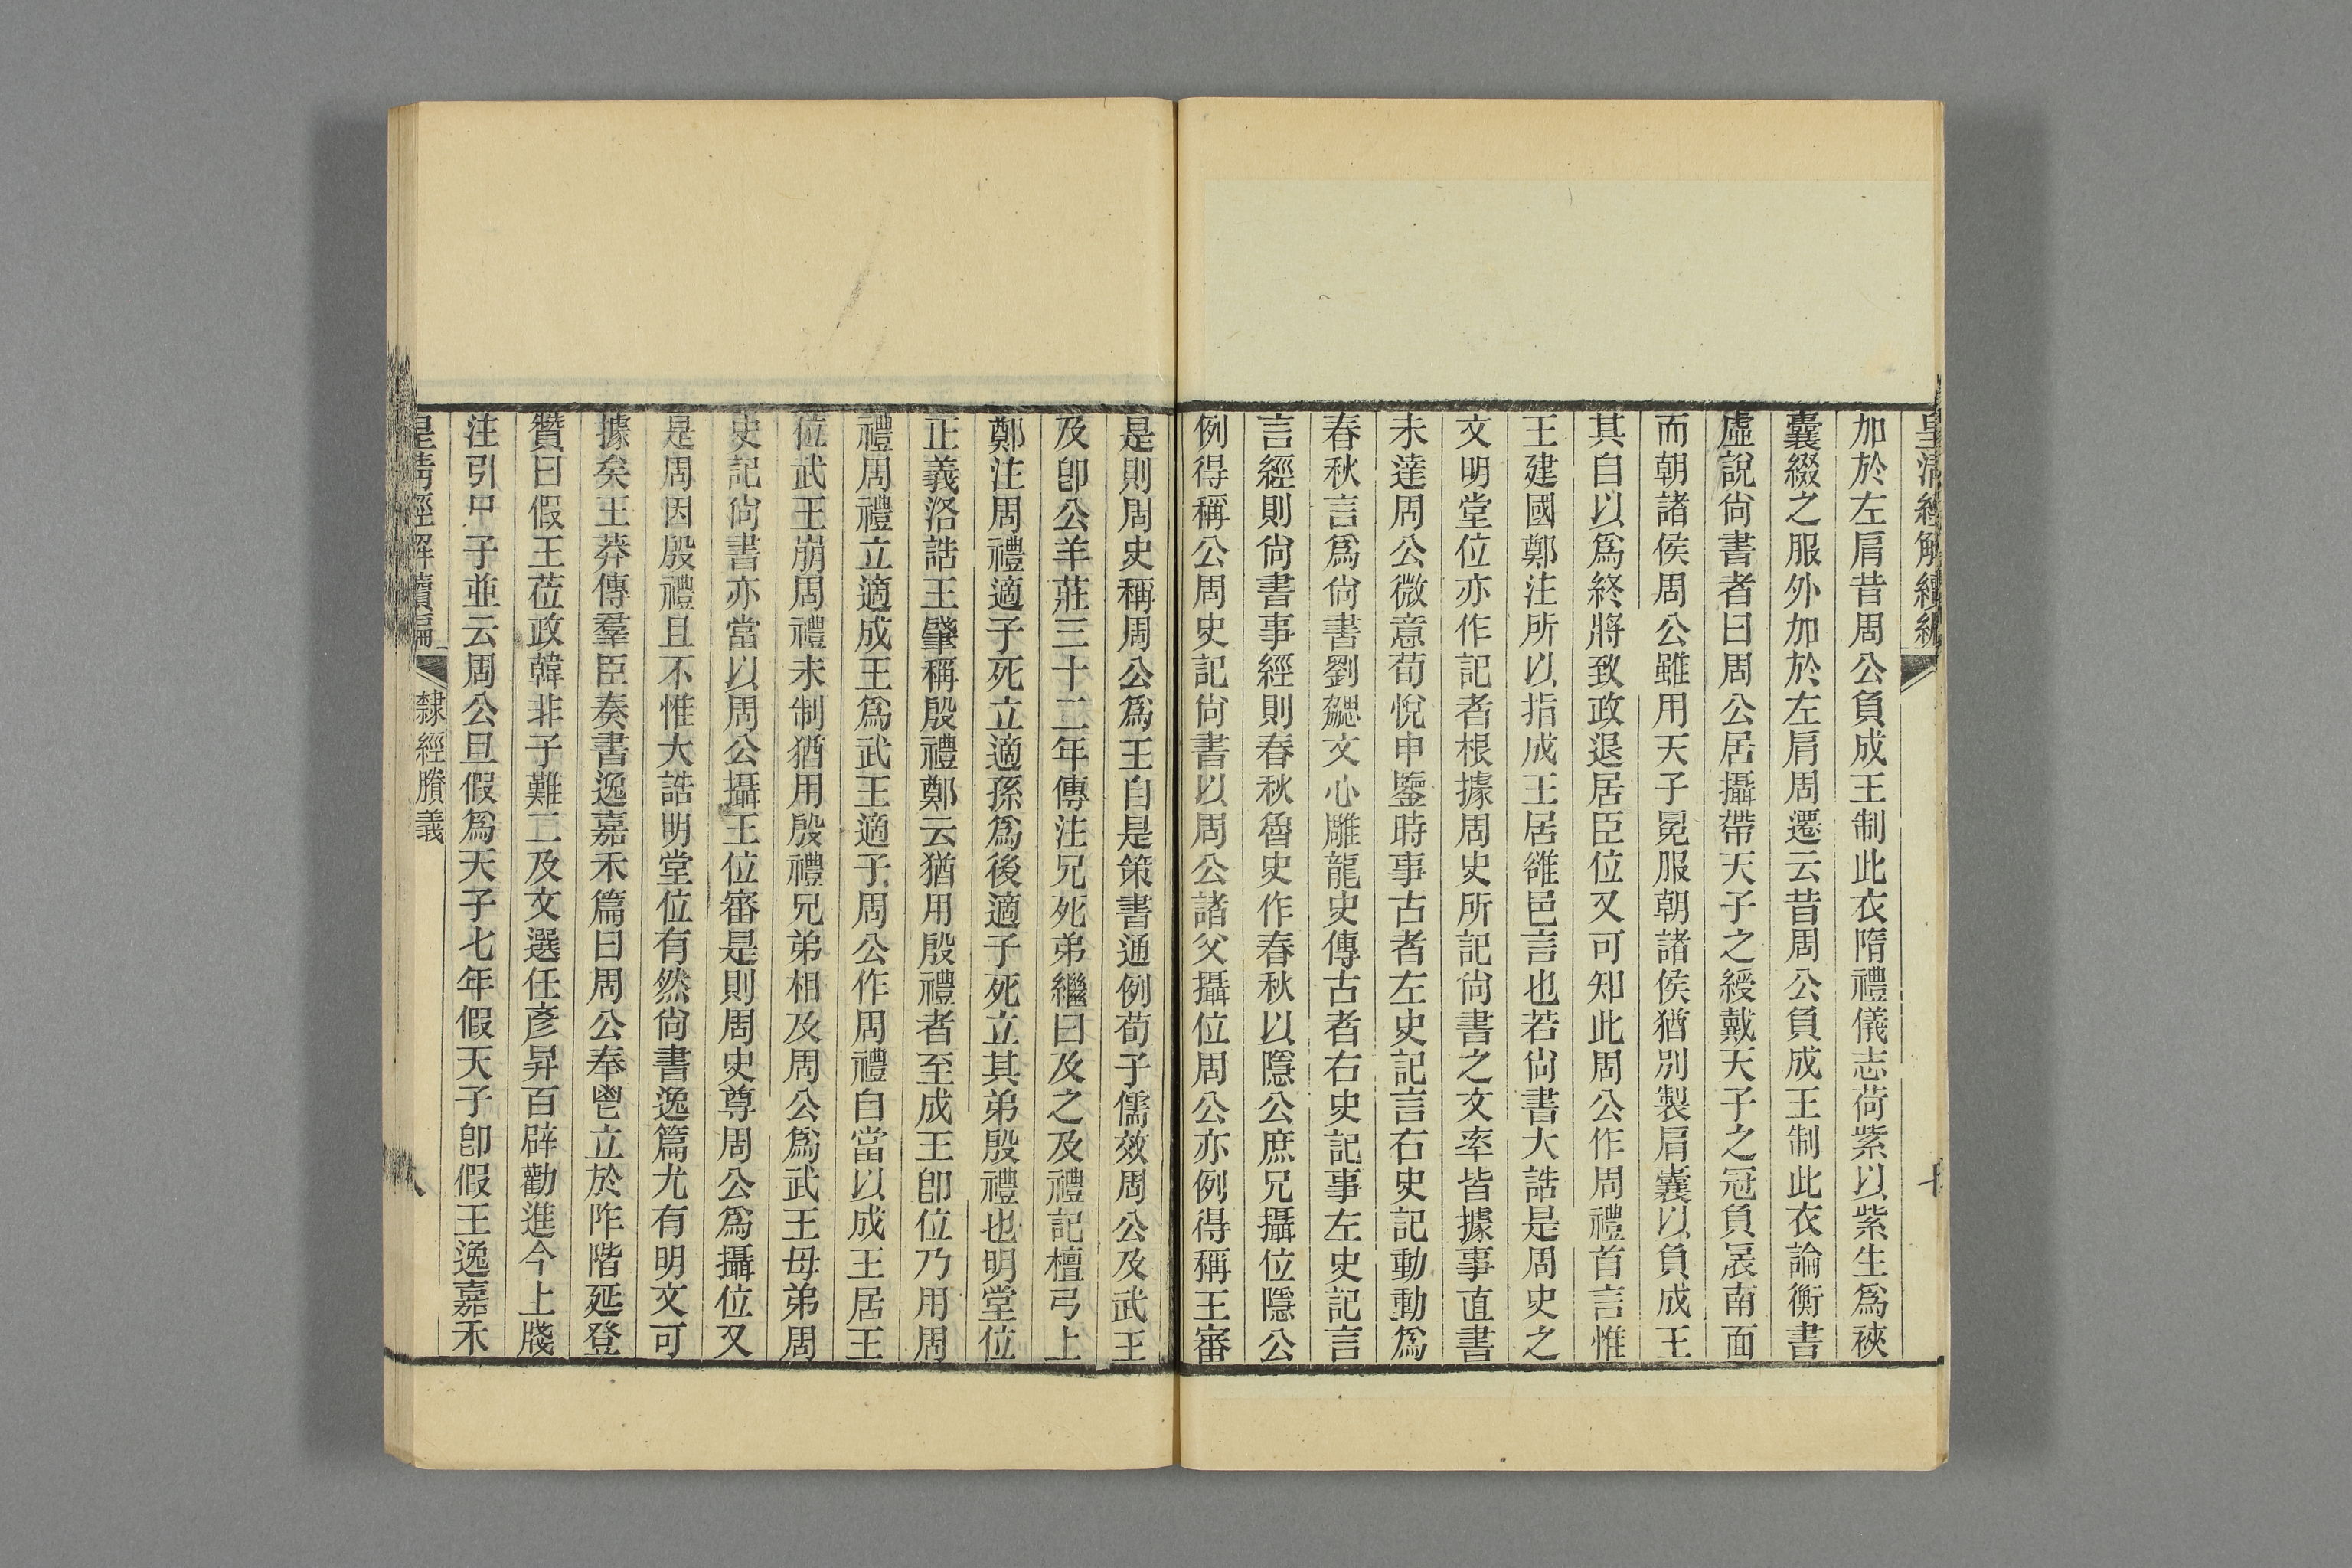 皇清經解續編
加於左肩昔周公負成王制此衣隋禮儀志荷紫以紫生爲裌
囊綴之服外加於左肩周遷云昔周公負成王制此衣論衡書
虛說尙書者曰周公居攝帶天子之綬戴天子之冠負扆南面
而朝諸侯周公雖用天子冕服朝諸侯猶別製肩囊以負成王
其自以爲終將致政退居臣位又可知此周公作周禮首言惟
王建國鄭注所以指成王居雒邑言也若尙書大誥是周史之
文明堂位亦作記者根據周史所記尙書之文率皆據事直書
未達周公微意荀悅申鑒時事古者左史記言右史記動動爲
春秋言爲尙書劉勰文心雕龍史傳古者右史記事左史記言
言經則尙書事經則春秋魯史作春秋以隱公庶兄攝位隱公
例得稱公周史記尙書以周公諸父攝位周公亦例得稱王審
是則周史稱周公爲王自是策書通例荀子儒效周公及武王
及卽公羊莊三十二年傳注兄死弟繼曰及之及禮記檀弓上
鄭注周禮適子死立適孫爲後適子死立其弟殷禮也明堂位
正義洛誥王肇稱殷禮鄭云猶用殷禮者至成王卽位乃用周
禮周禮立適成王爲武王適子周公作周禮自當以成王居王
位武王崩周禮未制猶用殷禮兄弟相及周公爲武王母弟周
史記尙書亦當以周公攝王位審是則周史尊周公爲攝位又
是周因殷禮且不惟大誥明堂位有然尙書逸篇尤有明文可
據矣王莽傳羣臣奏書逸嘉禾篇曰周公奉鬯立於阼階延登
贊曰假王莅政韓非子難二及文選任彥昇百辟勸進今上牋
注引尸子並云周公旦假爲天子七年假天子卽假王逸嘉禾
皇清經解續編 隸經賸義 八